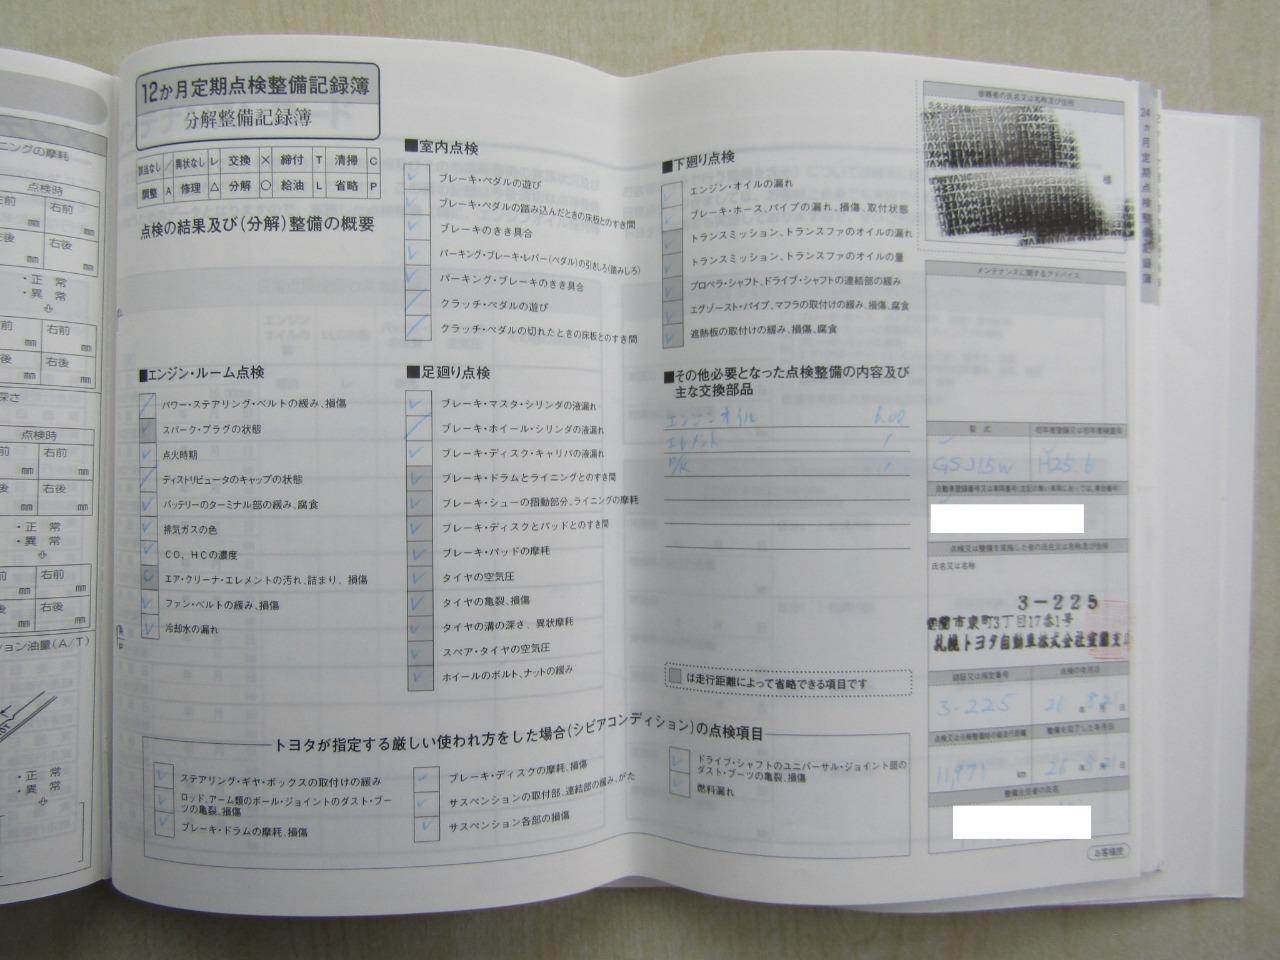 ニングの摩耗
点検時
左前
右前
mm
mm
右後
mm
mm
・正 常
・異 常
右前
mm
mm
右後
mm
mm
点検時
右前
mm
mm
右後
mm
mm
・正 常
・異 常
右前
mm
mm
右後
mm
mm
ション油量(A/T)
・正 常
・異 常
12か月定期点検整備記録簿
分解整備記録簿
該当なし ／ 異状なし レ 交換 × 締付 T 清掃 C
調整 A 修理 △ 分解 ○ 給油 L 省略 P
点検の結果及び(分解)整備の概要
■エンジン・ルーム点検
パワー・ステアリング・ベルトの緩み、損傷
スパーク・プラグの状態
点火時期
ディストリビュータのキャップの状態
バッテリーのターミナル部の緩み、腐食
排気ガスの色
CO、HCの濃度
エア・クリーナ・エレメントの汚れ、詰まり、損傷
ファン・ベルトの緩み、損傷
冷却水の漏れ
■室内点検
ブレーキ・ペダルの遊び
ブレーキ・ペダルの踏み込んだときの床板とのすき間
ブレーキのきき具合
パーキング・ブレーキ・レバー(ペダル)の引きしろ(踏みしろ)
パーキング・ブレーキのきき具合
クラッチ・ペダルの遊び
クラッチ・ペダルの切れたときの床板とのすき間
■足廻り点検
ブレーキ・マスタ・シリンダの液漏れ
ブレーキ・ホイール・シリンダの液漏れ
ブレーキ・ディスク・キャリパの液漏れ
ブレーキ・ドラムとライニングとのすき間
ブレーキ・シューの摺動部分、ライニングの摩耗
ブレーキ・ディスクとパッドとのすき間
ブレーキ・パッドの摩耗
タイヤの空気圧
タイヤの亀裂、損傷
タイヤの溝の深さ、異状摩耗
スペア・タイヤの空気圧
ホイールのボルト、ナットの緩み
■下廻り点検
エンジン・オイルの漏れ
ブレーキ・ホース、パイプの漏れ、損傷、取付状態
トランスミッション、トランスファのオイルの漏れ
トランスミッション、トランスファのオイルの量
プロペラ・シャフト、ドライブ・シャフトの連結部の緩み
エグゾースト・パイプ、マフラの取付けの緩み、損傷、腐食
遮熱板の取付けの緩み、損傷、腐食
■その他必要となった点検整備の内容及び
主な交換部品
エンジンオイル 6.00
エレメント 1
P/K 1
は走行距離によって省略できる項目です
トヨタが指定する厳しい使われ方をした場合(シビアコンディション)の点検項目
ステアリング・ギヤ・ボックスの取付けの緩み
ロッド、アーム類のボール・ジョイントのダスト・ブー
ツの亀裂、損傷
ブレーキ・ドラムの摩耗、損傷
ブレーキ・ディスクの摩耗、損傷
サスペンションの取付部、連結部の緩み、がた
サスペンション各部の損傷
ドライブ・シャフトのユニバーサル・ジョイント部の
ダスト・ブーツの亀裂、損傷
燃料漏れ
依頼者の氏名又は名称及び住所
氏名又は名称
様
メンテナンスに関するアドバイス
型 式
初年度登録又は初年度検査年
GSJ15W
H25.6
点検又は整備を実施した者の氏名又は名称及び住所
氏名又は名称
3-225
室蘭市東町3丁目17番1号
札幌トヨタ自動車株式会社室蘭支店
認証又は指定番号
点検の年月日
3-225
点検又は分解整備時の総走行距離
整備を完了した年月日
11,971 km
整備主任者の氏名
お客様控
24か月定期点検整備記録簿